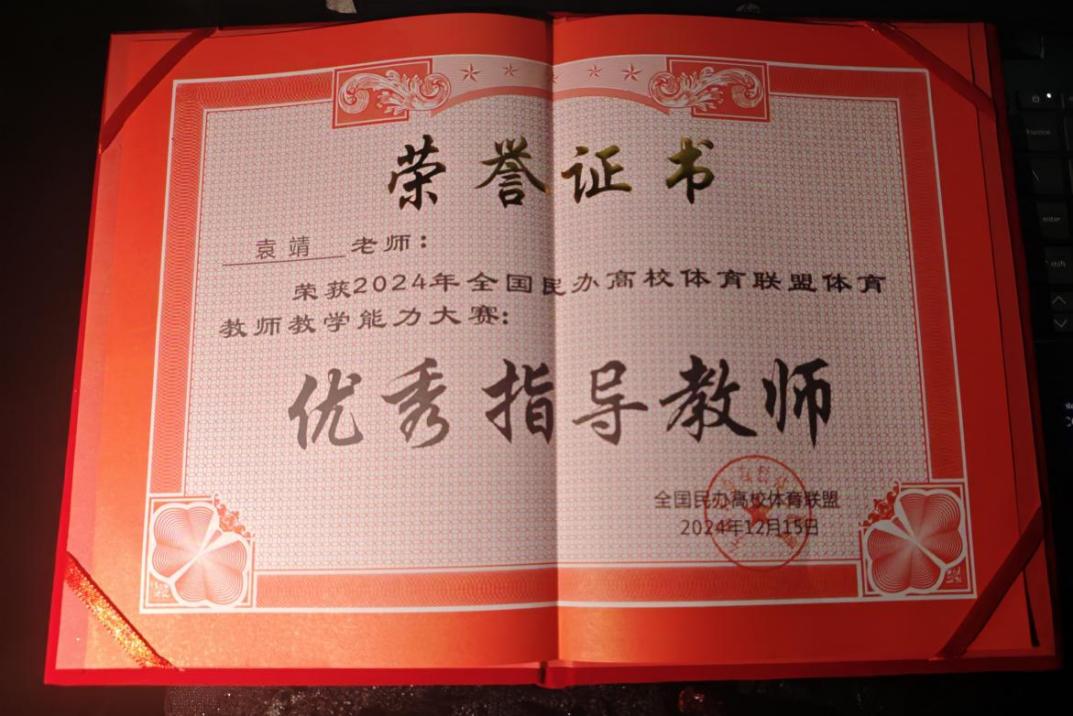 荣誉证书
袁靖 老师：
荣获2024年全国民办高校体育联盟体育
教师教学能力大赛：
优秀指导教师
全国民办高校体育联盟
2024年12月15日
enter